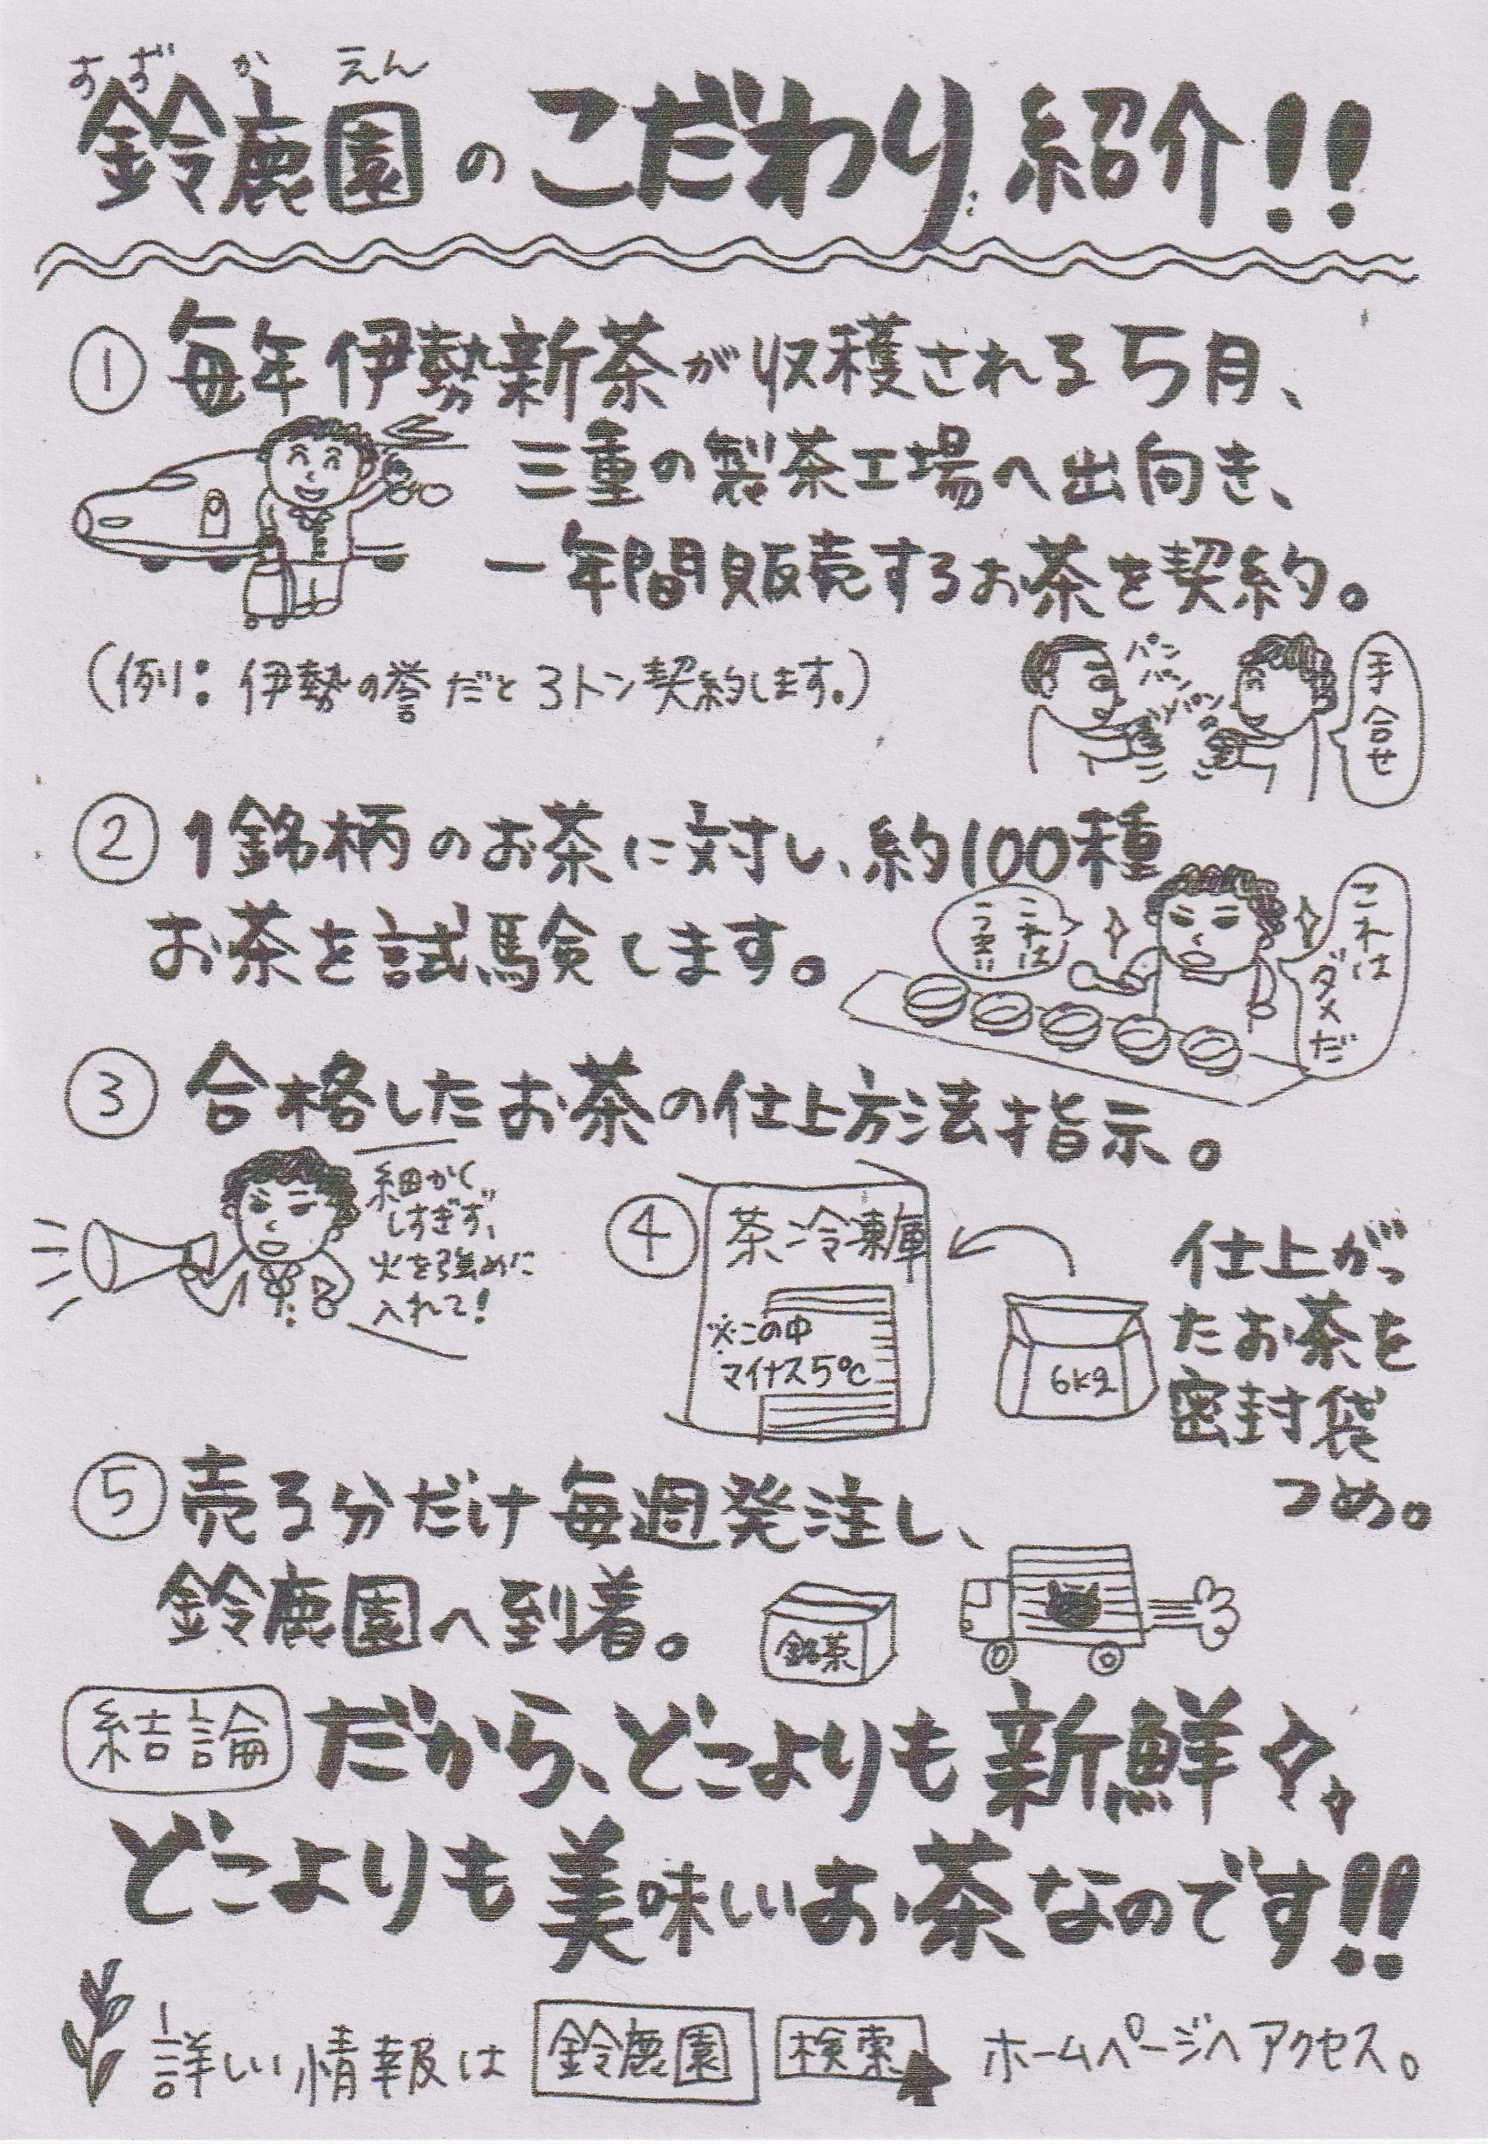 すずかえん
鈴鹿園のこだわり紹介!!
①毎年伊勢新茶が収穫される5月、
三重の製茶工場へ出向き、
一年間販売するお茶を契約。
(例:伊勢の誉だと3トン契約します。)
パン
パン
パン
手合せ
②1銘柄のお茶に対し、約100種
お茶を試験します。
これは
これは
ダメだ
③合格したお茶の仕上方法指示。
細かく
しすぎず、
火を強めに
入れて!
④
茶冷凍庫
※この中
マイナス5℃
6kg
仕上がっ
たお茶を
密封袋
つめ。
⑤売る分だけ毎週発注し、
鈴鹿園へ到着。
銘茶
結論 だから、どこよりも新鮮
どこよりも美味しいお茶なのです!!
詳しい情報は 鈴鹿園 検索 ホームページへアクセス。